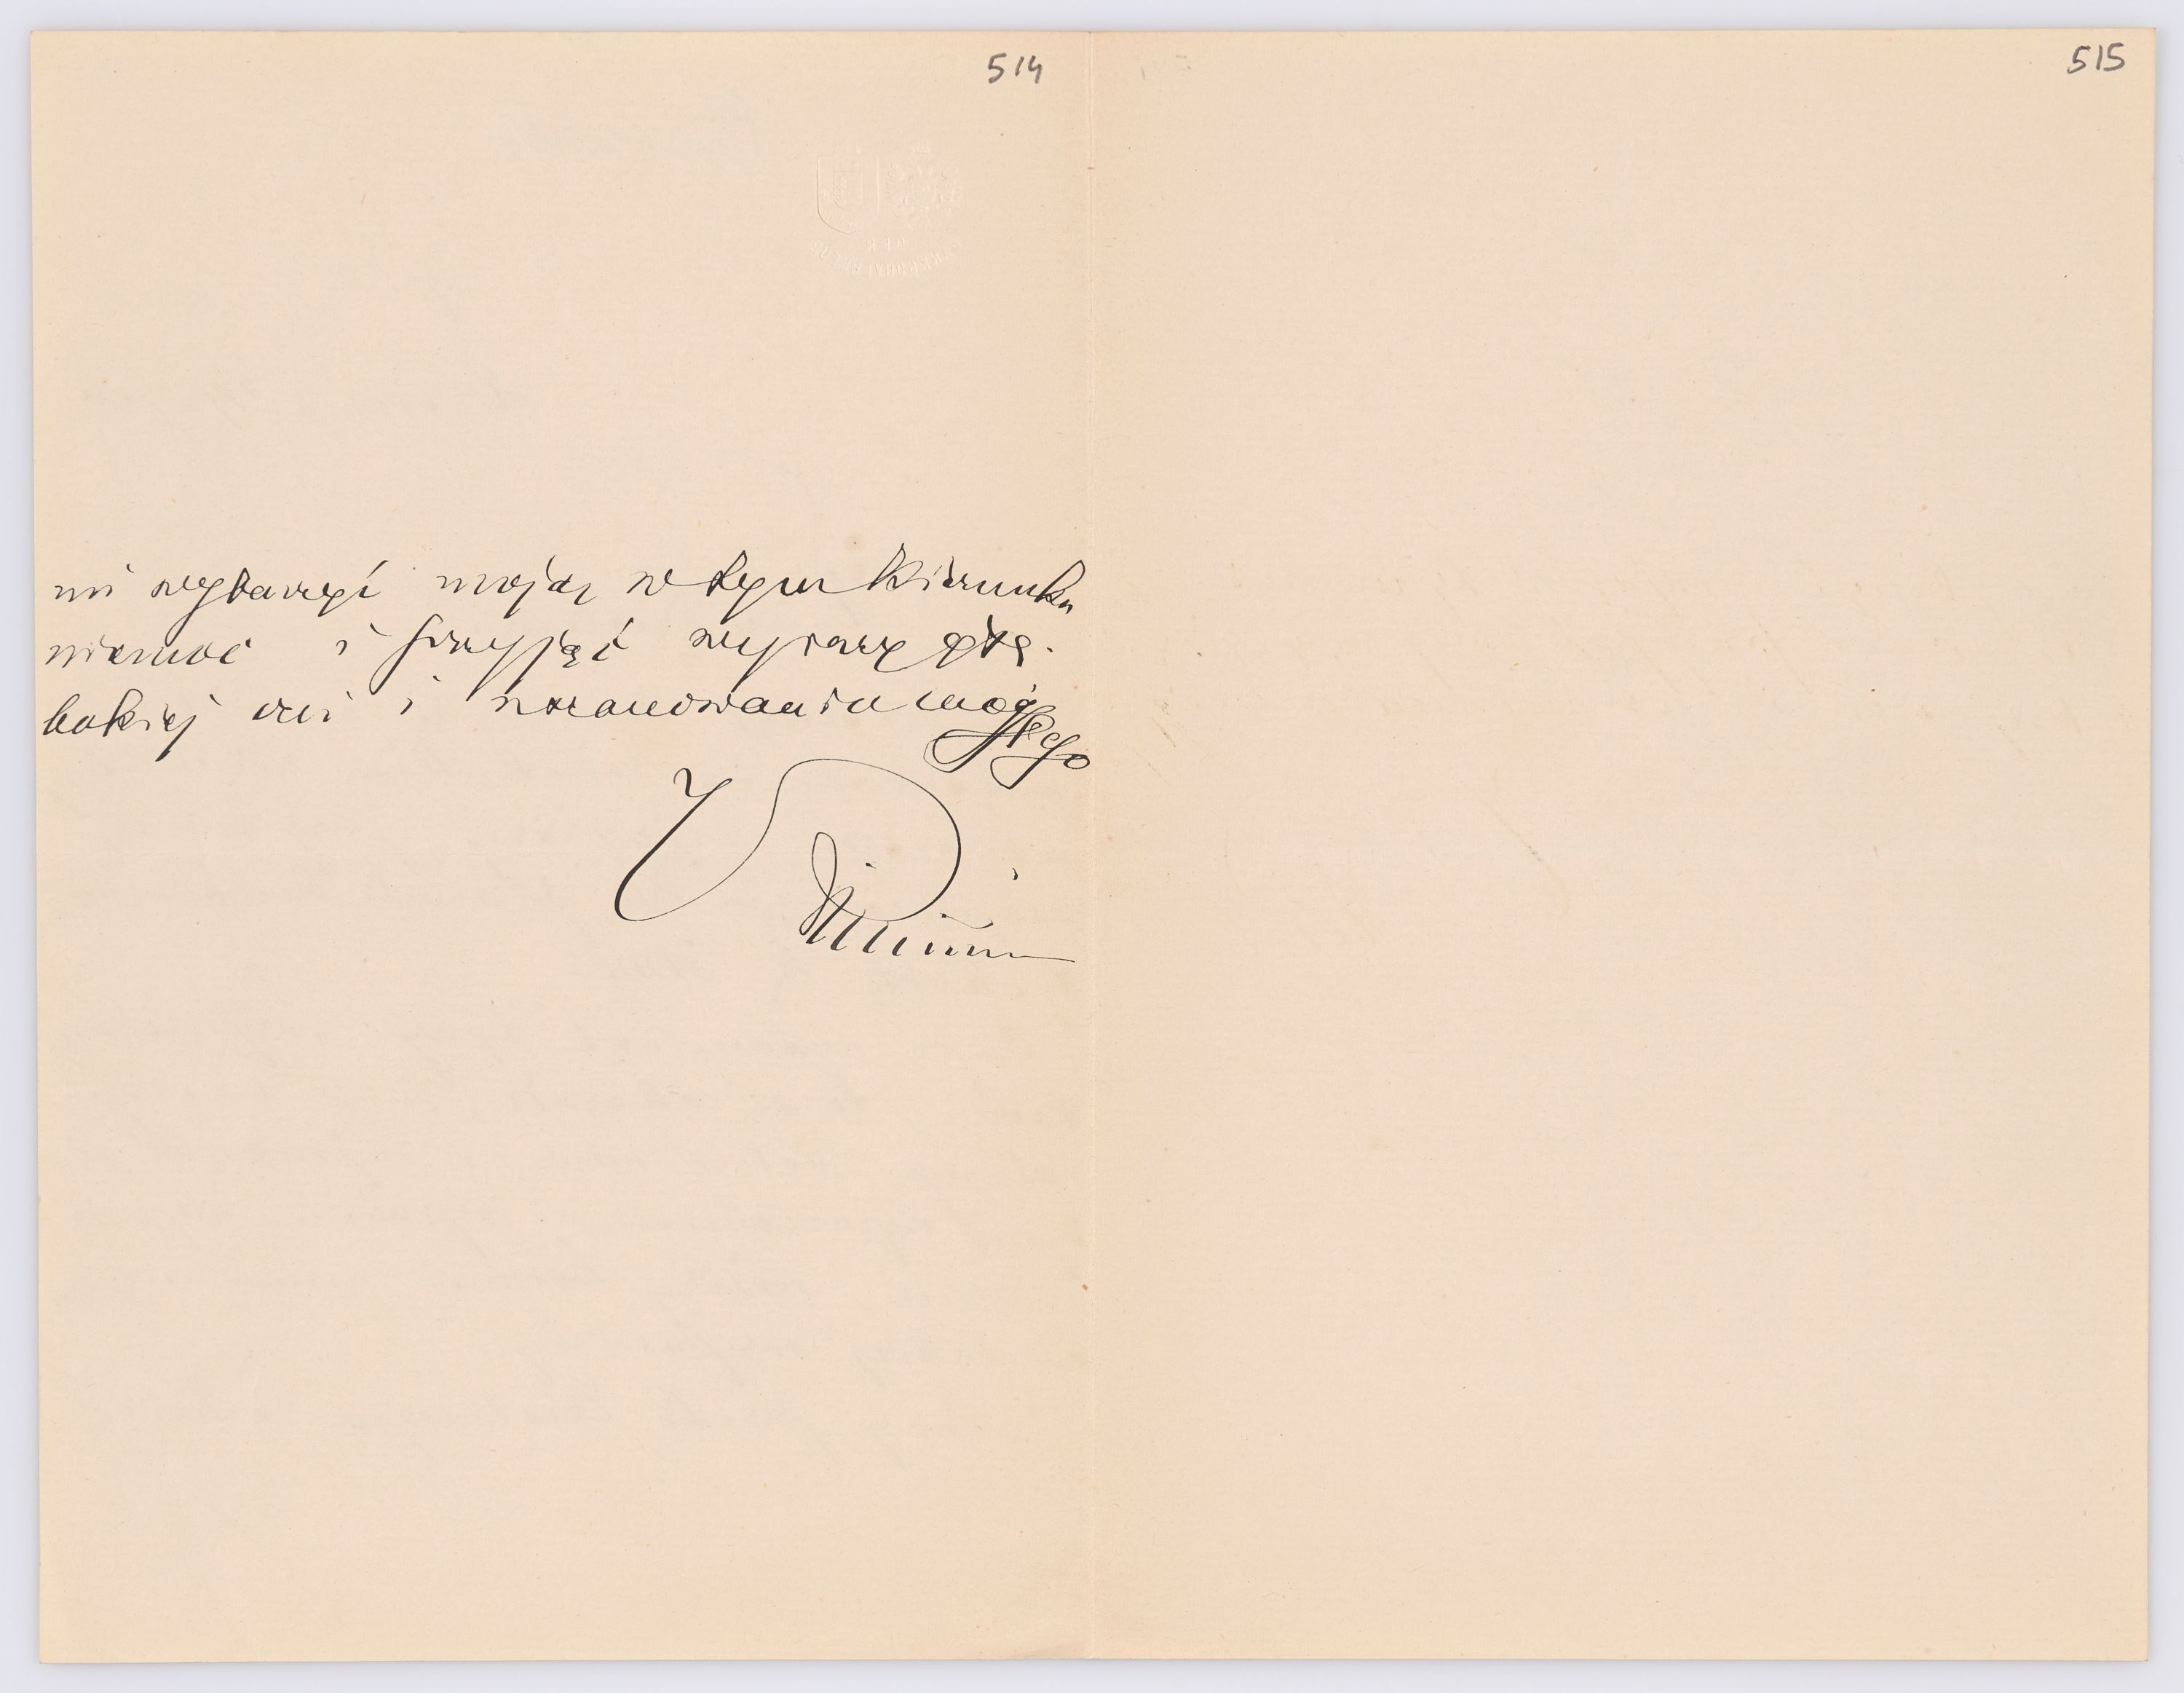 514
515
mi wybaczyć moją w tym kierunku
niemoc i przyjąć wyrazy głę-
bokiej czci i uszanowania mojego